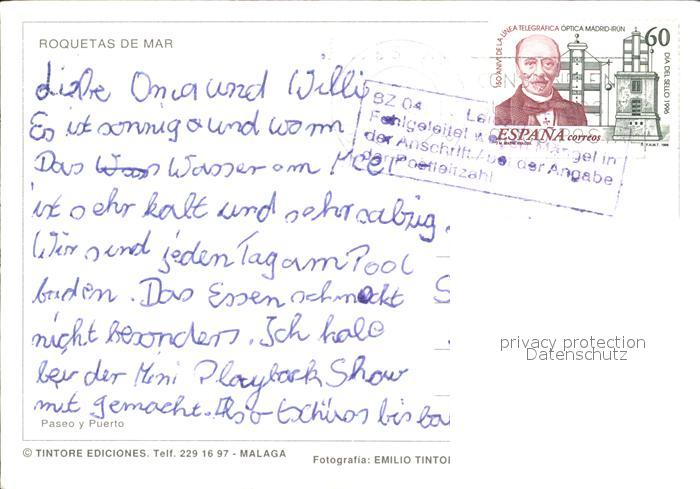 ROQUETAS DE MAR
150 ANIV. DE LA LINEA TELEGRÁFICA ÓPTICA MADRID-IRÚN
60
DIA DEL SELLO 1996
ESPAÑA correos
BZ 04
Fehlgeleitet Mängel in
der Anschrift / der Angabe
der Postleitzahl
liebe Oma und Willi
Es ist sonnig und warm
Das Wasser am Meer
ist sehr kalt und sehr salzig.
Wir sind jeden Tag am Pool
baden. Das Essen schmeckt
nicht besonders. Ich habe
bei der Mini Playback Show
mit gemacht. Also tschüss bis ba
privacy protection
Datenschutz
Paseo y Puerto
© TINTORE EDICIONES. Telf. 229 16 97 - MALAGA
Fotografía: EMILIO TINTO